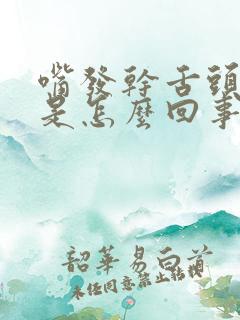 嘴發幹舌頭
是怎麼回事
韶華易白首
未任同意禁止转载